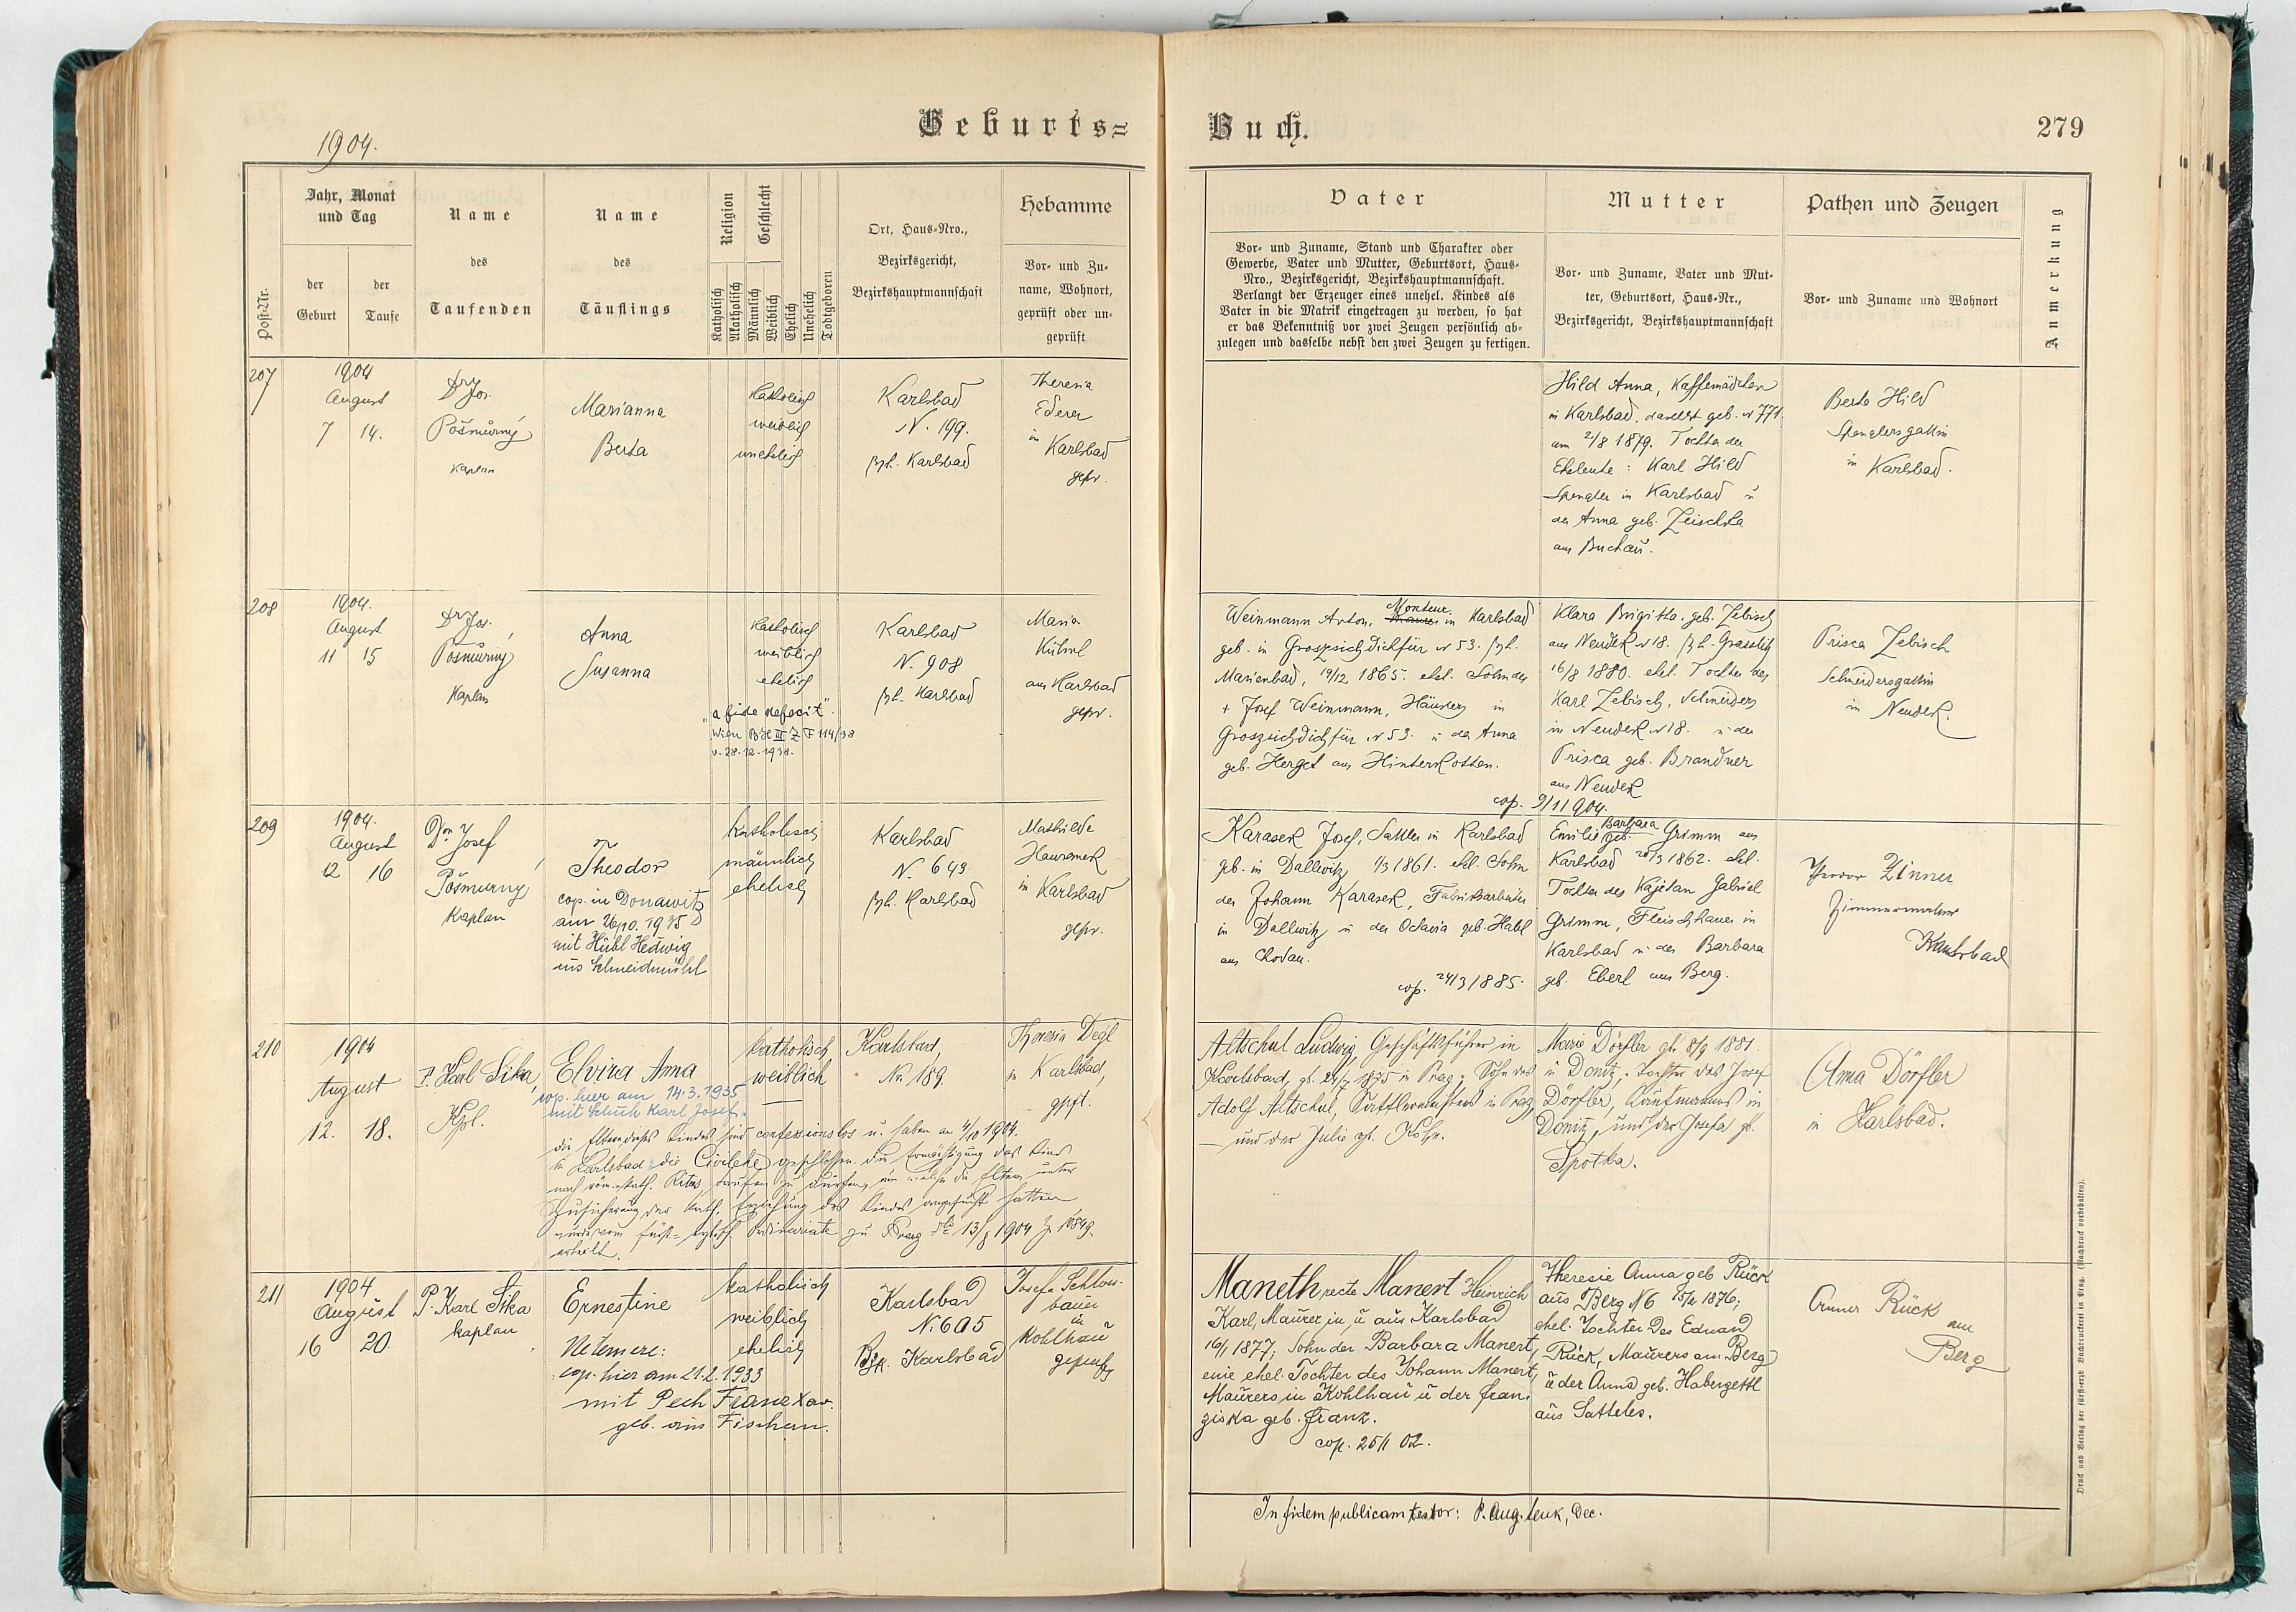 1904.
Geburts=
Buch.
279
Post-Nr.
Jahr, Monat
und Tag
der
Geburt
der
Taufe
Name
des
Taufenden
Name
des
Täuflings
Religion
Katholisch
Akatholisch
Geschlecht
Männlich
Weiblich
Ehelich
Unehelich
Todtgeboren
Ort, Haus-Nro.,
Bezirksgericht,
Bezirkshauptmannschaft
Hebamme
Vor- und Zu-
name, Wohnort,
geprüft oder un-
geprüft
Vater
Vor- und Zuname, Stand und Charakter oder
Gewerbe, Vater und Mutter, Geburtsort, Haus-
Nro., Bezirksgericht, Bezirkshauptmannschaft.
Verlangt der Erzeuger eines unehel. Kindes als
Vater in die Matrik eingetragen zu werden, so hat
er das Bekenntniß vor zwei Zeugen persönlich ab-
zulegen und dasselbe nebst den zwei Zeugen zu fertigen.
Mutter
Vor- und Zuname, Vater und Mut-
ter, Geburtsort, Haus-Nr.,
Bezirksgericht, Bezirkshauptmannschaft
Pathen und Zeugen
Vor- und Zuname und Wohnort
Anmerkung
207
1904
August
7 14.
Dr Jos.
Pošmůrný
Kaplan
Marianna
Berta
katholisch
weiblich
unehelich
Karlsbad
N. 199.
Bzh. Karlsbad
Theresia
Ederer
in
Karlsbad
gepr.
Hild Anna, Kaffemädchen
in Karlsbad, daselbst geb. N 771.
am 2/8 1879. Tochter der
Eheleute: Karl Hild
Spengler in Karlsbad u
der Anna geb. Zeischka
aus Buchau.
Berta Hild
Spenglersgattin
in Karlsbad.
208
1904.
August
11 15
Dr Jos.
Pošmůrný
Kaplan
Anna
Susanna
katholisch
weiblich
ehelich
"a fide defecit".
Wien BH III Z F 114/38
v. 28.12.1938.
Karlsbad
N. 908
Bzh. Karlsbad
Maria
Kühnl
aus Karlsbad
gepr.
Weinmann Anton, Monteur in Karlsbad
geb. in Groszsichdichfür N 53. Bzh.
Marienbad, 19/12 1865. ehel. Sohn des
+ Josef Weinmann, Häuslers in
Groszsichdichfür N 53. u der Anna
geb. Herget aus Hinterkotten.
Klara Brigitta, geb. Zebisch
aus Neudek N 18. Bzh. Graslitz
16/8 1880. ehel. Tochter des
Karl Zebisch, Schneiders
in Neudek N 18. u der
Prisca geb. Brandner
aus Neudek
cop. 9/1 1904.
Prisca Zebisch
Schneidersgattin
in Neudek.
209
1904.
August
12 16
Dr. Josef
Pošmurný
Kaplan
Theodor
cop. in Donawitz
am 26/10. 1935
mit Hübl Hedwig
aus Schneidmühl
katholisch
männlich
ehelich
Karlsbad
N. 643.
Bzh. Karlsbad
Mathilde
in Karlsbad
gepr.
Karasek Josef, Sattler in Karlsbad
geb. in Dallwitz 1/3 1861. ehel. Sohn
des Johann Karasek, Fabriksarbeiter
in Dallwitz u der Octavia geb. Habl
aus Chodau.
cop. 24/3 1885.
Emilie Barbara geb. Grimm aus
Karlsbad 20/3 1862. ehel.
Tochter des Kajetan Gabriel
Grimm, Fleischhauer in
Karlsbad u der Barbara
geb. Eberl aus Berg.
Theodor Zinner
Zimmermaler
Karlsbad
210
1904
August
12. 18.
P. Karl Sika,
Kpl.
Elvira Anna
cop. hier am 14.3.1935
mit Schuh Karl Josef.
katholisch
weiblich
Karlsbad,
Nr. 189.
Theresia Degl
in Karlsbad,
gpft.
die Eltern dieses Kindes sind confessionslos u. haben am 4/10 1904.
in Karlsbad die Civilehe geschlossen. Die Ermächtigung das Kind
nach röm. kath. Ritus taufen zu dürfen, um welche die Eltern unter
Zusicherung der kath. Erziehung des Kindes angesucht hatten
wurde vom fürst-erzbisch. Ordinariate zu Prag
erteilt.
Altschul Ludwig, Geschäftsführer in
Karlsbad, gb. 24/7 1875 in Prag; Sohn des
Adolf Altschul, Sattlermeisters in Prag,
und der Julie gb. Kohn.
Marie Dörfler gb. 8/9 1881.
in Donitz, Tochter des Josef
Dörfler, Kaufmanns in
Donitz, und der Josefa gb.
Spotka.
Anna Dörfler
in Karlsbad.
211
1904
August
16 20.
P. Karl Sika
kaplan
Ernestine
Ne temere:
cop. hier am 21.2.1933
mit Pech Franz Xav.
geb. aus Fischern.
katholisch
weiblich
ehelich
Karlsbad
N. 605
Bzh. Karlsbad
Josefa Schloss-
bauer
in
Kohlhau
geprüft
Maneth recte Manert Heinrich
Karl, Maurer in u aus Karlsbad
16/1 1877, Sohn der Barbara Manert,
eine ehel. Tochter des Johann Manert,
Maurers in Kohlhau u der Fran-
ziska geb. Franz.
cop. 25/1 02.
Theresie Anna geb Rück
aus Berg N6 15/2 1876;
ehel. Tochter des Eduard
Rück, Maurers am Berg
u der Anna geb. Habergettl
aus Satteles.
Anna Rück
am
Berg
In fidem publicam testor: P. Aug. Lenk, Dec.
Druck und Verlag der fürsterzb. Buchdruckerei in Prag. (Nachdruck vorbehalten).